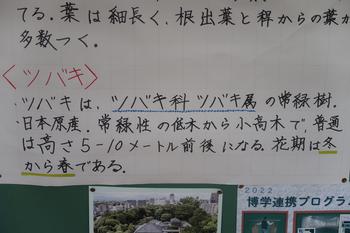 てる。葉は細長く、根出葉と稈からの葉が
多数つく。
＜ツバキ＞
・ツバキは、ツバキ科ツバキ属の常緑樹。
・日本原産。常緑性の低木から小高木で、普通
は高さ5-10メートル前後になる。花期は冬
から春である。
2022
博学連携プログラム